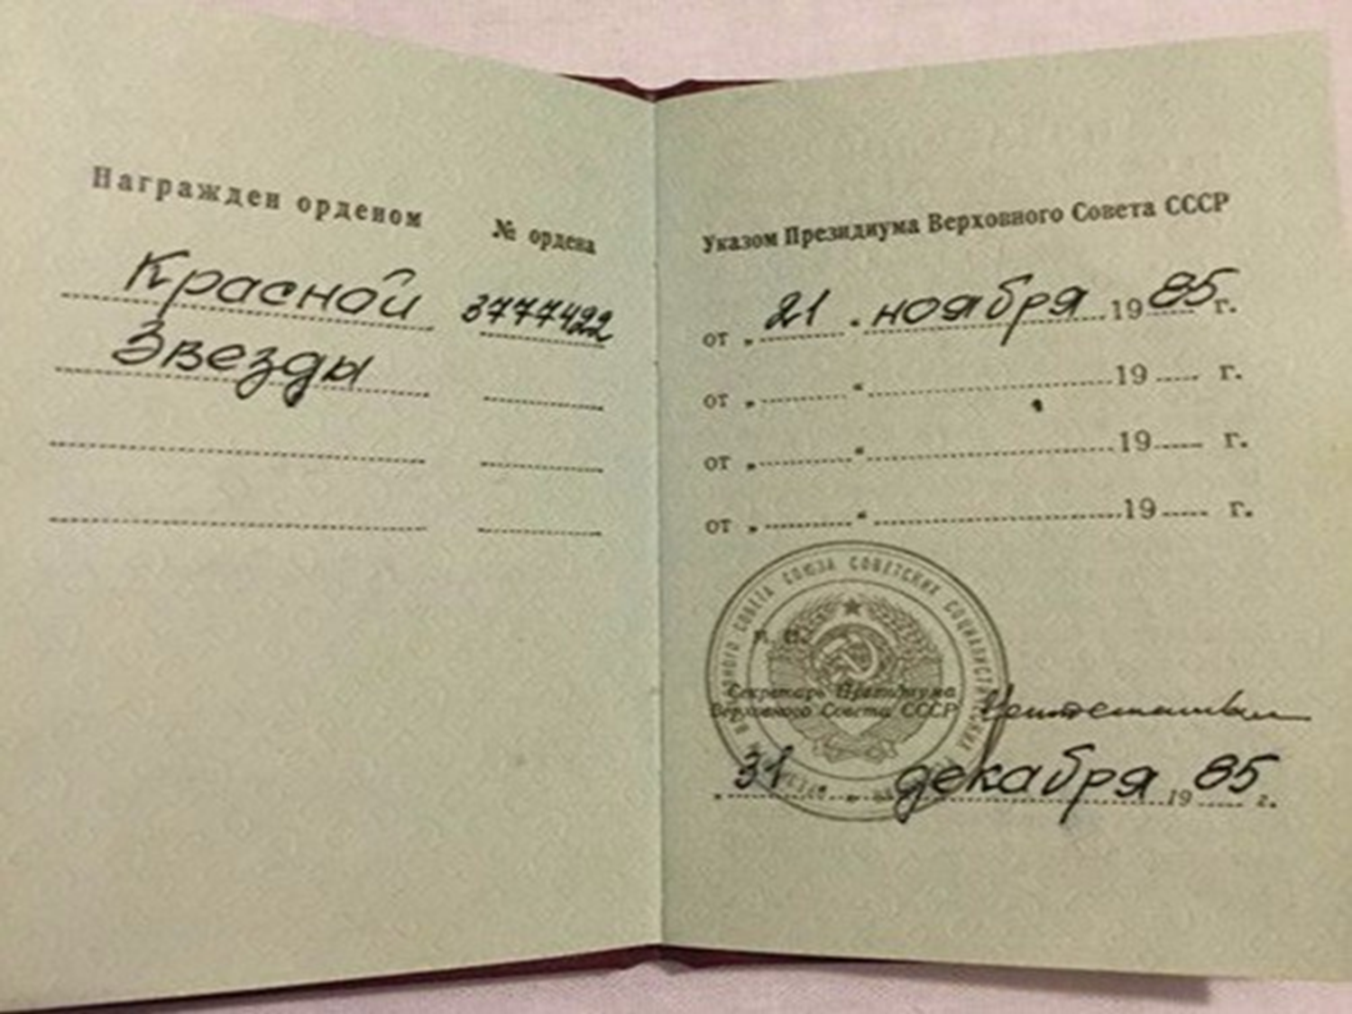 Награжден орденом
№ ордена
Красной
3777422
Звезды
Указом Президиума Верховного Совета СССР
от „ 21 “ ноября 1985 г.
от „ “ 19 г.
от „ “ 19 г.
от „ “ 19 г.
СОВЕТА СОЮЗА СОВЕТСКИХ СОЦИАЛИСТИЧЕСКИХ
М. П.
Секретарь Президиума
Верховного Совета СССР
„ 31 “ декабря 1985 г.